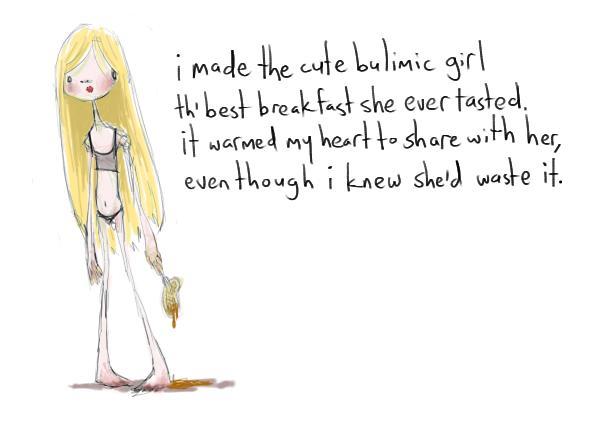 i made the cute bulimic girl
th' best breakfast she ever tasted.
it warmed my heart to share with her,
even though i knew she'd waste it.